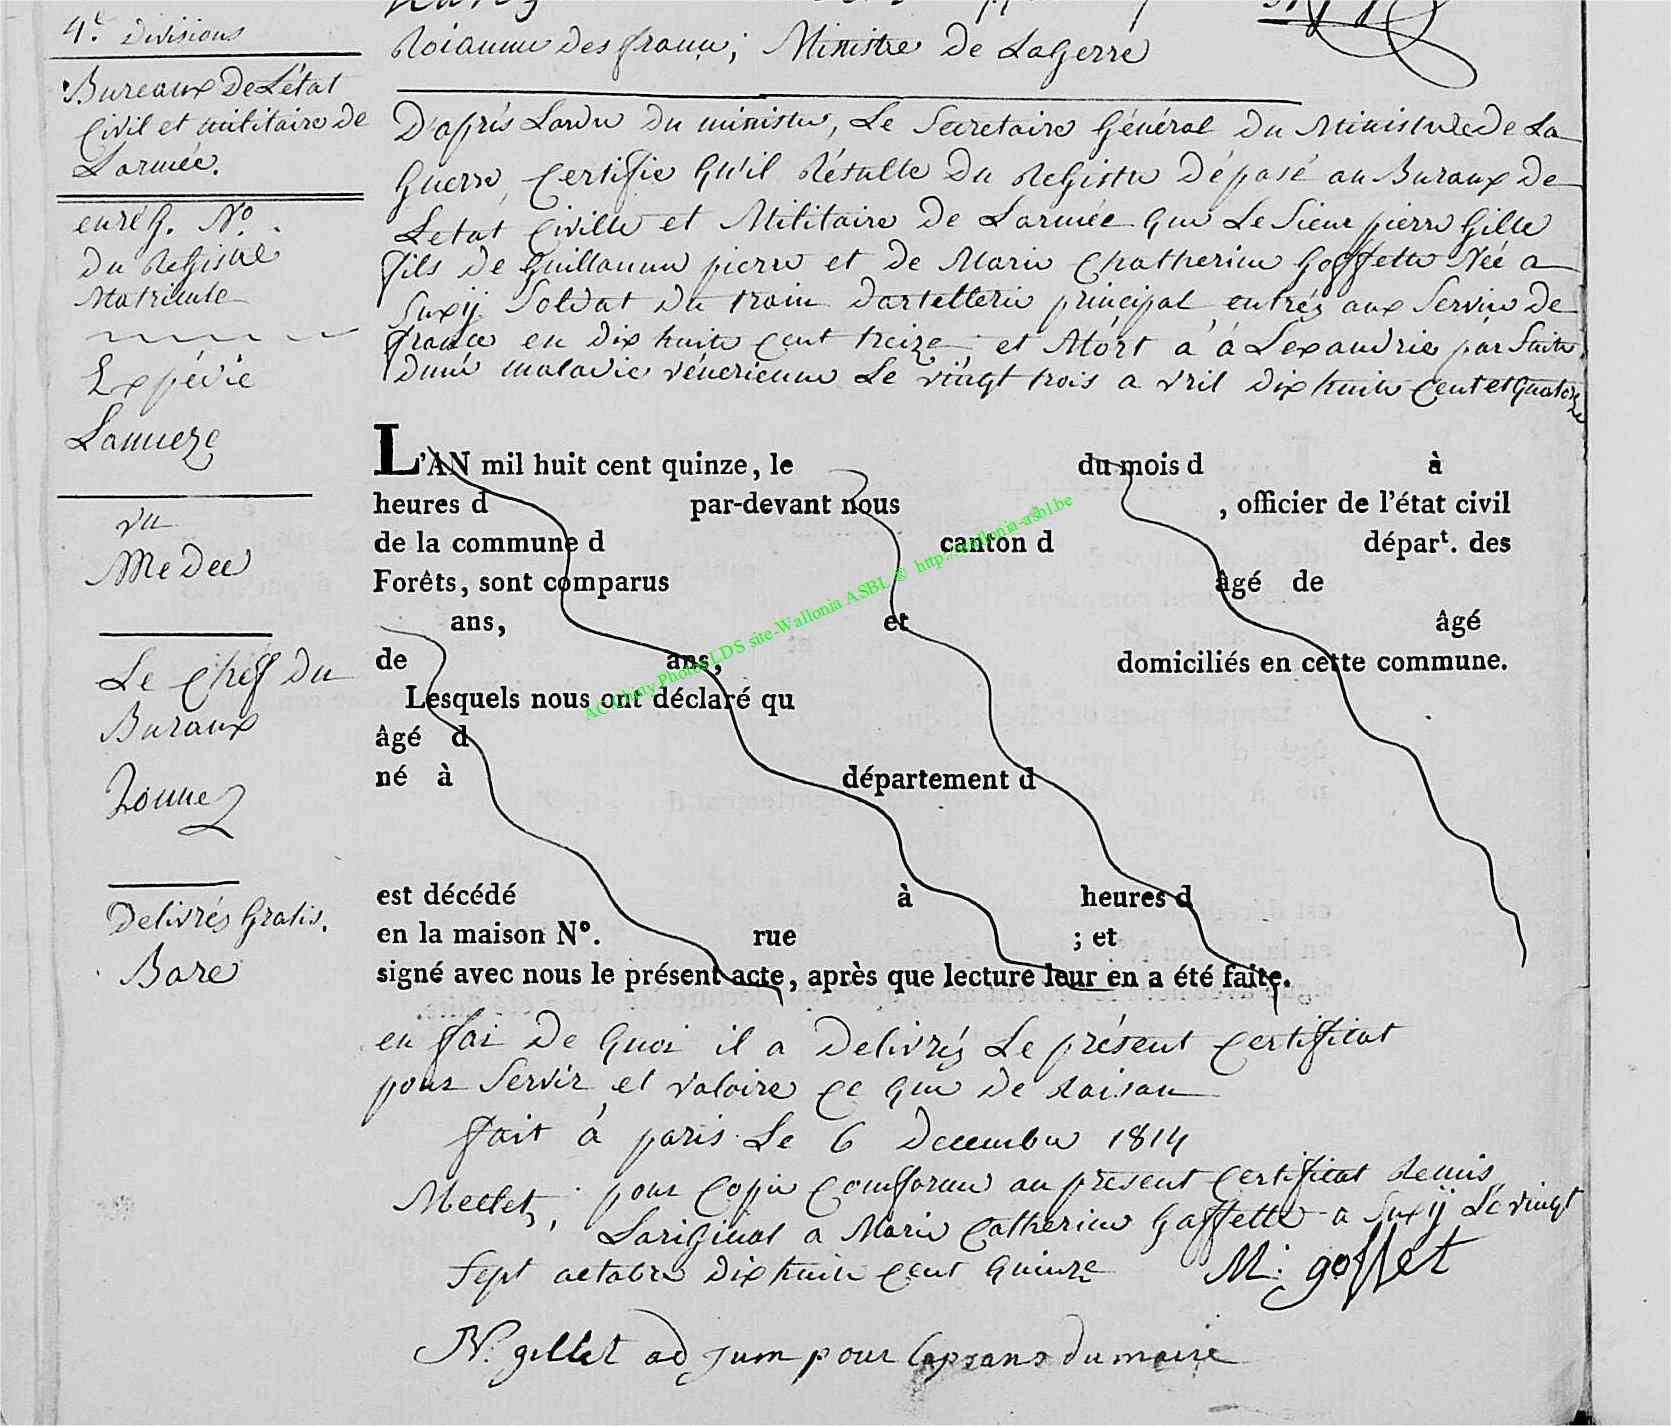 4.e Divisions
Bureaux De L'état
Civil et militaire de
L'armée.
enrég. No.
du Registre
Matricule
Expédié
vu
Medee
Le Chef du
Buraux
Delivrés Gratis.
Bare
Roiaume des france; Ministre De LaGerre
D'aprés Lordre du ministre, Le Secretaire Général du Ministere de La
Guerre, Certifie qu'il Résulte Du Registre Déposé au Buraux De
Letat Civille et Militaire De L'armée que Le Sieur pierre Gille
fils De Guillaume pierre et de Marie Chatherine Goffette Née a
Suxij Soldat Du train dartellerie principal entrés aux Service De
france en Dix huite Cent treize; et Mort a á Lexandrie par Suite
Duné maladie vénerienne Le vingt trois a vril Dix huite Cent et Quatorze
L'AN mil huit cent quinze, le du mois d à
heures d par-devant nous , officier de l'état civil
de la commune d canton départ. des
Forêts, sont comparus âgé de
ans, et âgé
de ans, domiciliés en cette commune.
Lesquels nous ont déclaré qu
âgé d
né à département d
est décédé à heures d
en la maison N°. rue ; et
signé avec nous le présent acte, après que lecture leur en a été faite.
AC Chiny Photos LDS site-Wallonia ASBL © http://wallonia-asbl.be
en foi De Quoi il a Delivrés Le présent Certificat
pour Servir et valoire Ce que De Raison
fait á paris Le 6 Decembre 1814
Meclet, pour Copie Comforme au present Certificat Remis
Lariginal a Marie Catherine Gaffette a Suxij Le vingt
Sept actobre Dix huite Cent Quinze M: goffet
N. gillet ad Juin pour lapsans du maire